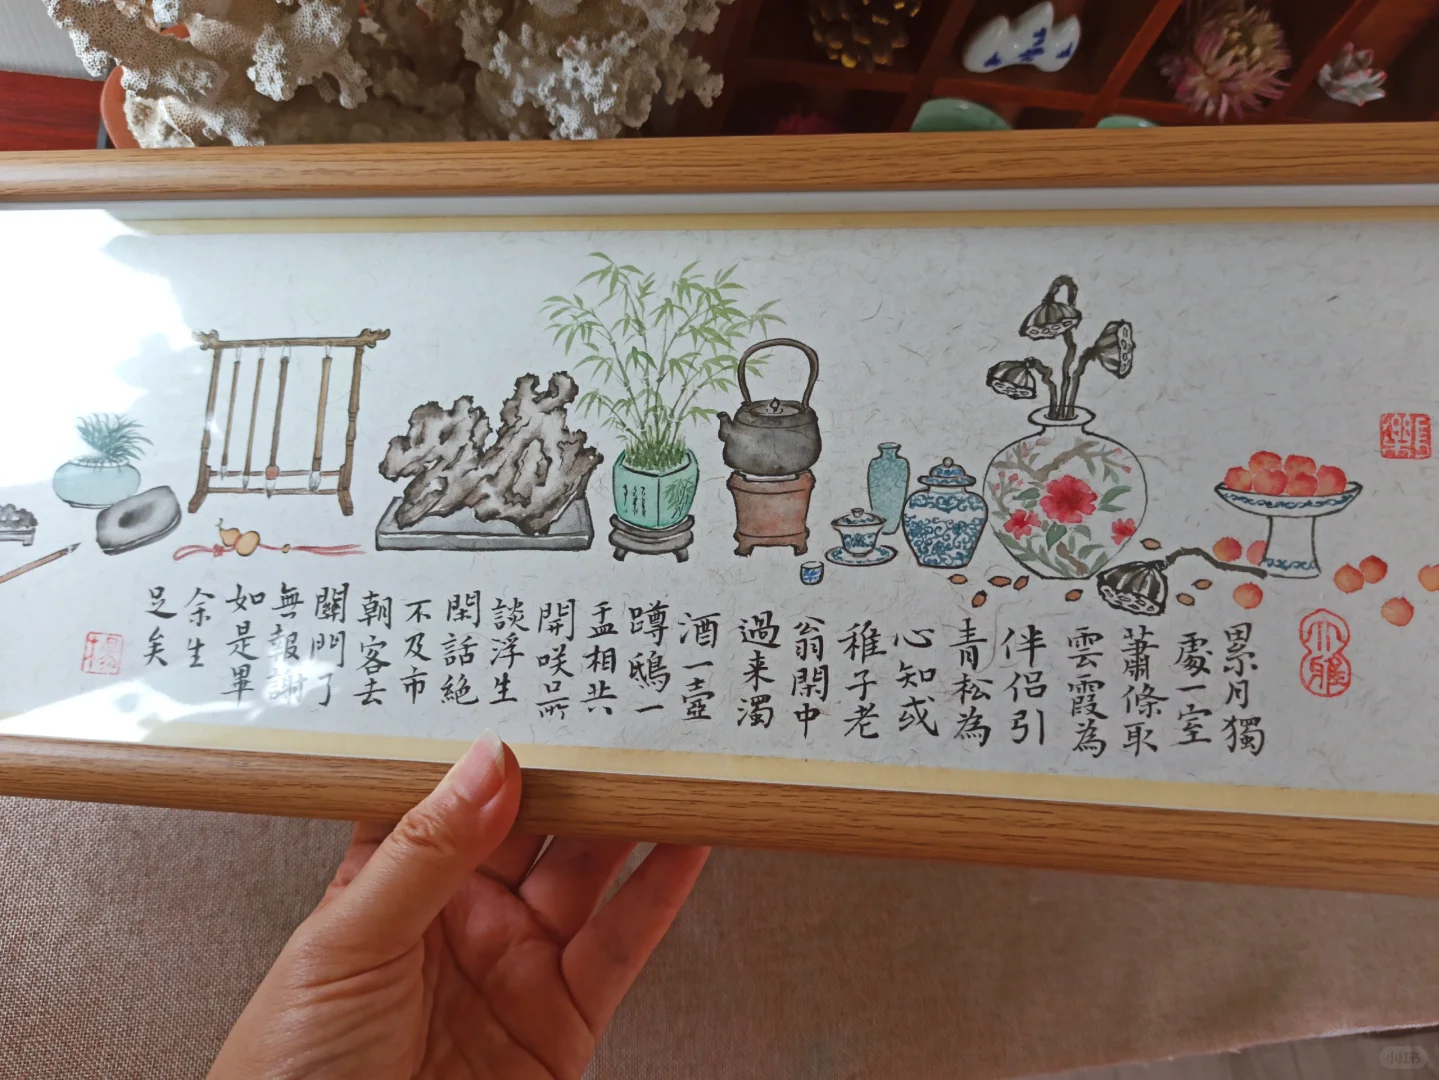 長樂
大雅
累月獨
處一室
蕭條取
雲霞為
伴侣引
青松為
心知或
稚子老
翁閑中
過来濁
酒一壺
蹲鴟一
盂相共
開咲口所
談浮生
閑話絶
不及市
朝客去
關門了
無報謝
如是畢
余生
足矣
小红书